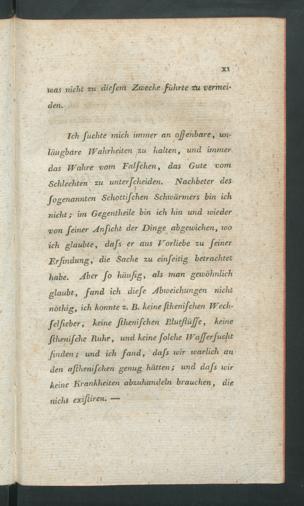 XI
was nicht zu dieſem Zwecke führte zu vermei-
den.
Ich ſuchte mich immer an offenbare, un-
läugbare Wahrheiten zu halten, und immer
das Wahre vom Falſchen, das Gute vom
Schlechten zu unterſcheiden. Nachbeter des
ſogenannten Schottiſchen Schwärmers bin ich
nicht; im Gegentheile bin ich hin und wieder
von ſeiner Anſicht der Dinge abgewichen, wo
ich glaubte, daſs er aus Vorliebe zu ſeiner
Erfindung, die Sache zu einſeitig betrachtet
habe. Aber ſo häufig, als man gewöhnlich
glaubt, fand ich dieſe Abweichungen nicht
nöthig, ich konnte z. B. keine ſtheniſchen Wech-
ſelfieber, keine ſtheniſchen Blutflüſſe, keine
ſtheniſche Ruhr, und keine ſolche Waſſerſucht
finden; und ich fand, daſs wir warlich an
den aſtheniſchen genug hätten; und daſs wir
keine Krankheiten abzuhandeln brauchen, die
nicht exiſtiren. —